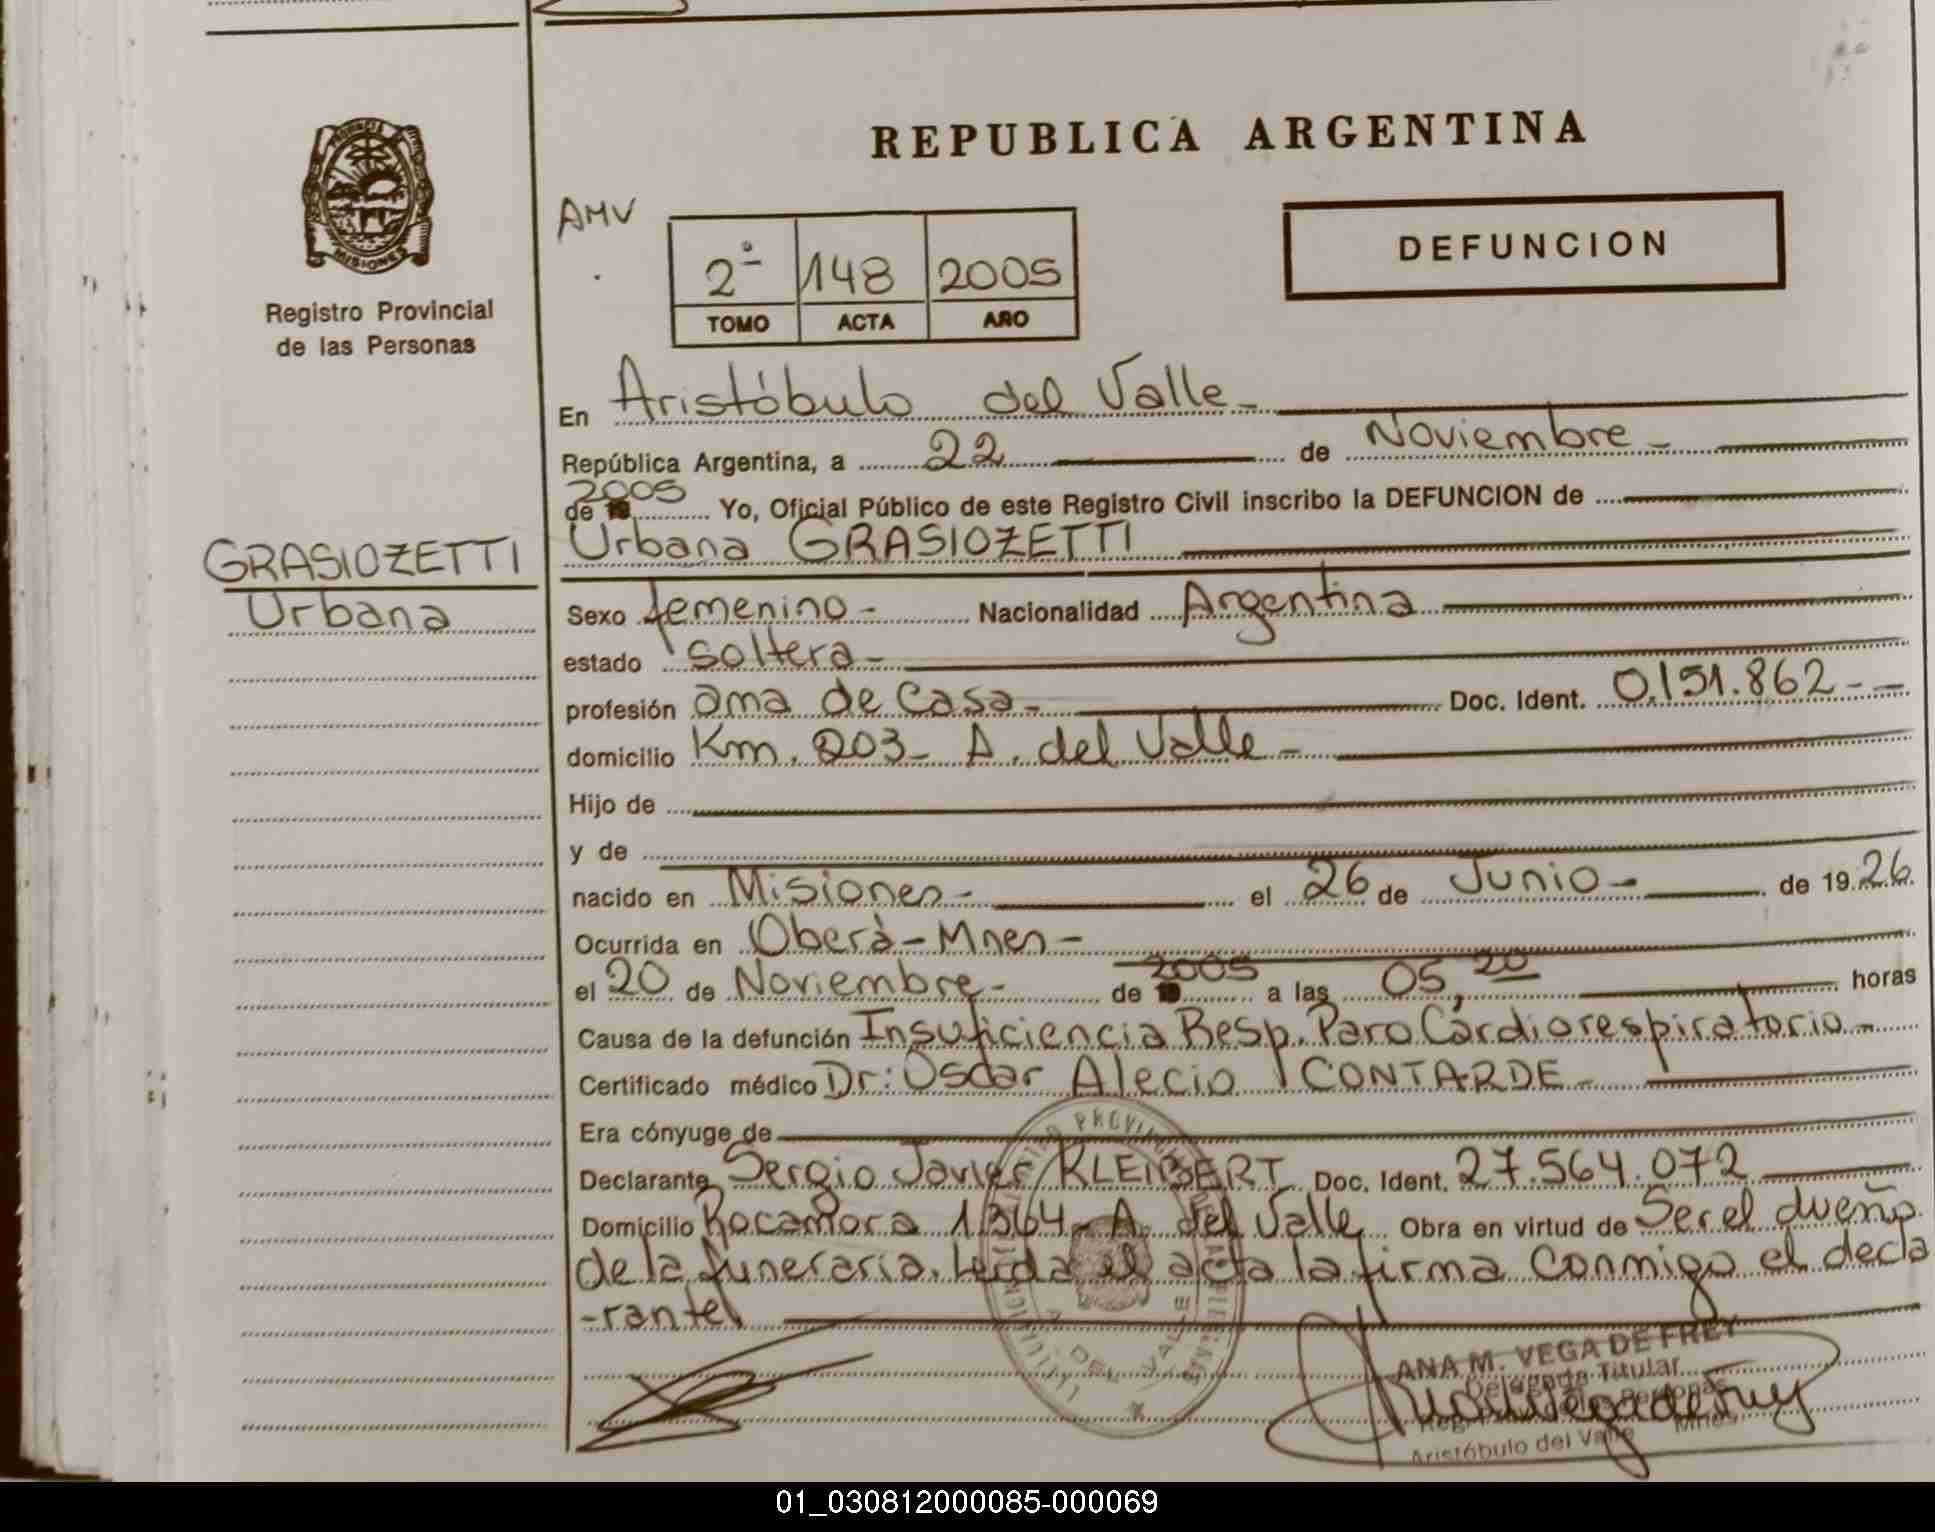 REPUBLICA ARGENTINA
PROVINCIA
MISIONES
Registro Provincial
de las Personas
AMV
2º 148 2005
TOMO ACTA AÑO
DEFUNCION
En Aristóbulo del Valle-
República Argentina, a 22 de Noviembre-
de 19 2005 Yo, Oficial Público de este Registro Civil inscribo la DEFUNCION de
GRASIOZETTI
Urbana
Urbana GRASIOZETTI
Sexo femenino- Nacionalidad Argentina
estado soltera-
profesión ama de casa- Doc. Ident. 0.151.862--
domicilio Km. 203- A. del Valle-
Hijo de
y de
nacido en Misiones- el 26 de Junio- de 1926
Ocurrida en Oberá-Mnes-
el 20 de Noviembre- de 19 2005 a las 05,20 horas
Causa de la defunción Insuficiencia Resp. Paro Cardiorespiratorio-
Certificado médico Dr: Oscar Alecio CONTARDE-
Era cónyuge de
Declarante Sergio Javier KLEIBERT Doc. Ident. 27.564.072
Domicilio Rocamora 1364- A. del Valle Obra en virtud de Ser el dueño
de la funeraria. Leida el acta la firma conmigo el decla
-rante
ANA M. VEGA DE FREY
Delegada Titular
Aristóbulo del Valle Mnes
01_030812000085-000069